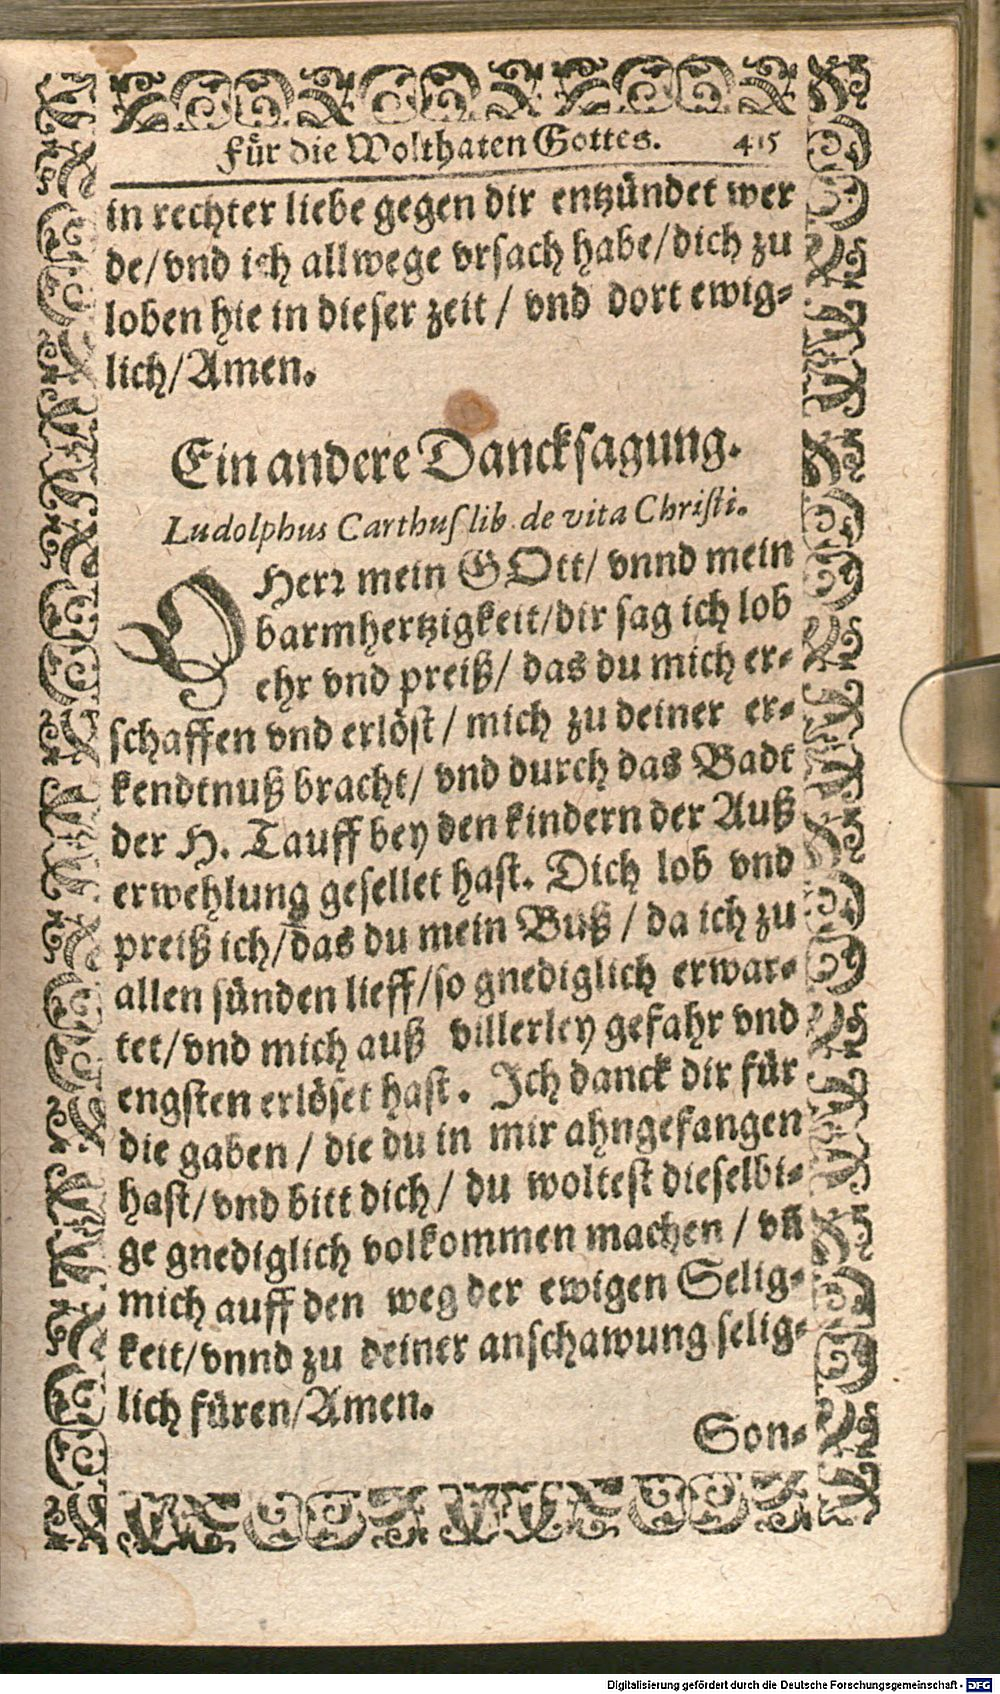 Für die Wolthaten Gottes. 415
in rechter liebe gegen dir entzündet wer
de/vnd ich allwege vrsach habe/dich zu
loben hie in dieser zeit / vnd dort ewig-
lich/Amen.
Ein andere Dancksagung.
Ludolphus Carthus lib. de vita Christi.
O Herr mein GOtt/ vnnd mein
barmhertzigkeit/dir sag ich lob
ehr vnd preiß/ das du mich er-
schaffen vnd erlöst / mich zu deiner er-
kendtnuß bracht/ vnd durch das Badt
der H. Tauff bey den kindern der Auß
erwehlung gesellet hast. Dich lob vnd
preiß ich/das du mein Buß / da ich zu
allen sünden lieff/so gnediglich erwar-
tet/vnd mich auß villerley gefahr vnd
engsten erlöset hast. Ich danck dir für
die gaben / die du in mir ahngefangen
hast/vnd bitt dich/ du woltest dieselbi-
ge gnediglich volkommen machen / vñ
mich auff den weg der ewigen Selig-
keit/vnnd zu deiner anschawung selig-
lich füren/Amen.
Son-
Digitalisierung gefördert durch die Deutsche Forschungsgemeinschaft - DFG